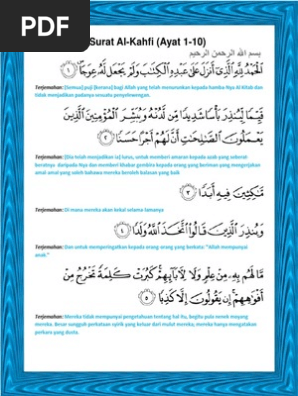 PDF
Surat Al-Kahfi (Ayat 1-10)
بسم الله الرحمن الرحيم
الْحَمْدُ لِلَّهِ الَّذِي أَنزَلَ عَلَىٰ عَبْدِهِ الْكِتَابَ وَلَمْ يَجْعَل لَّهُ عِوَجًا ١
Terjemahan: [Semua] puj [kenana] bagi Allah yang telah menurunkan kepada hamba-Nya Al Kitab dan
tidak menjadikan padanya sesuatu penyelewengan.
قَيِّمًا لِّيُنذِرَ بَأْسًا شَدِيدًا مِّن لَّدُنْهُ وَيُبَشِّرَ الْمُؤْمِنِينَ الَّذِينَ
يَعْمَلُونَ الصَّالِحَاتِ أَنَّ لَهُمْ أَجْرًا حَسَنًا ٢
Terjemahan: [Dia telah menjadikan ia] lurus, untuk memberi amaran kepada azab yang seberat-
beratnya daripada Nya dan memberi khabar gembira kepada orang yang beriman yang mengerjakan
amal-amal yang saleh bahawa mereka beroleh balasan yang baik
مَّاكِثِينَ فِيهِ أَبَدًا ٣
Terjemahan: Di mana mereka akan kekal selama lamanya
وَيُنذِرَ الَّذِينَ قَالُوا اتَّخَذَ اللَّهُ وَلَدًا ٤
Terjemahan: Dan untuk memperingatkan kepada orang-orang yang berkata: "Allah mempunyai
anak."
مَّا لَهُم بِهِ مِنْ عِلْمٍ وَلَا لِآبَائِهِمْ كَبُرَتْ كَلِمَةً تَخْرُجُ مِنْ
أَفْوَاهِهِمْ إِن يَقُولُونَ إِلَّا كَذِبًا ٥
Terjemahan: Mereka tidak mempunyai pengetahuan tentang hal itu, begitu pula nenek moyang
mereka. Besar sungguh perkataan yang keluar dari mulut mereka, mereka hanya mengatakan
perkara yang dusta.